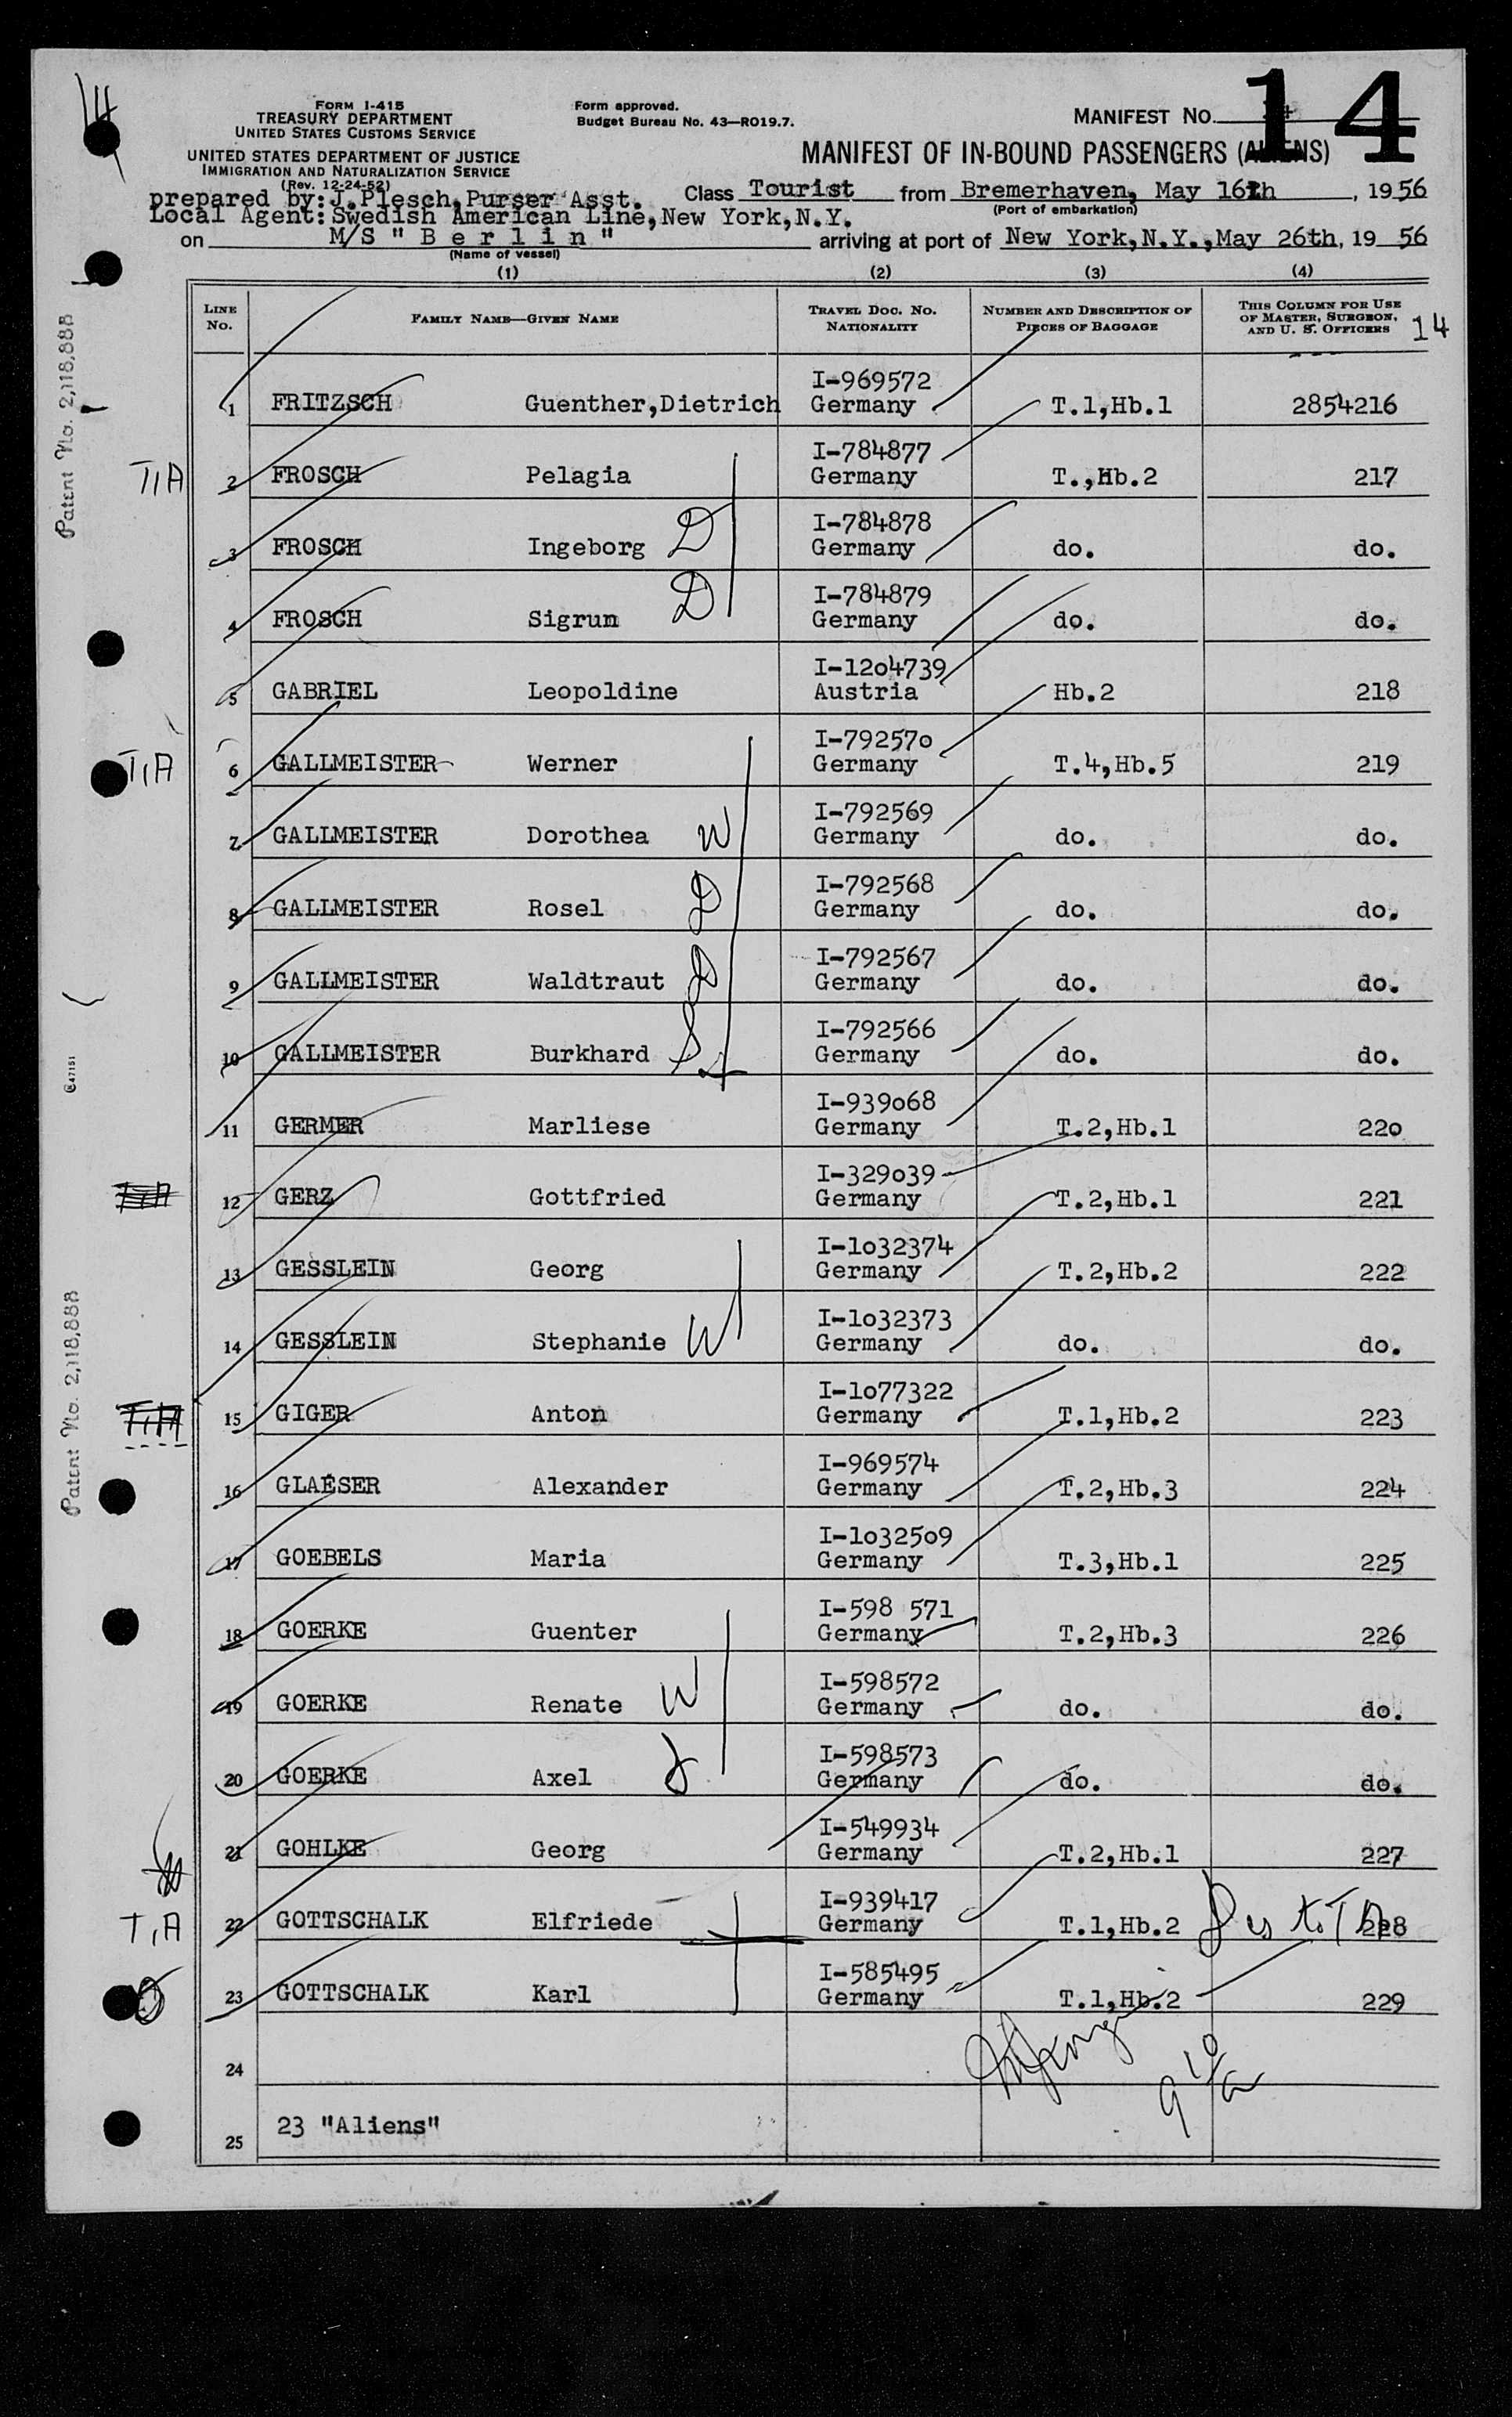 14
FORM I-415
TREASURY DEPARTMENT
UNITED STATES CUSTOMS SERVICE
UNITED STATES DEPARTMENT OF JUSTICE
IMMIGRATION AND NATURALIZATION SERVICE
(Rev. 12-24-52)
Form approved.
Budget Bureau No. 43—RO19.7.
MANIFEST NO.
MANIFEST OF IN-BOUND PASSENGERS (ALIENS)
prepared by: J.Plesch,Purser Asst. Class Tourist from Bremerhaven, May 16th, 1956
Local Agent: Swedish American Line, New York,N.Y. (Port of embarkation)
on M/S " B e r l i n " arriving at port of New York,N.Y.,May 26th, 19 56
(Name of vessel)
(1) (2) (3) (4)
LINE NO. FAMILY NAME—GIVEN NAME TRAVEL DOC. NO. NATIONALITY NUMBER AND DESCRIPTION OF PIECES OF BAGGAGE THIS COLUMN FOR USE OF MASTER, SURGEON, AND U. S. OFFICERS 14
I-969572
1 FRITZSCH Guenther,Dietrich Germany T.1,Hb.1 2854216
I-784877
T,A 2 FROSCH Pelagia Germany T.,Hb.2 217
I-784878
3 FROSCH Ingeborg D Germany do. do.
I-784879
4 FROSCH Sigrun D Germany do. do.
I-1204739
5 GABRIEL Leopoldine Austria Hb.2 218
I-792570
T,A 6 GALLMEISTER Werner Germany T.4,Hb.5 219
I-792569
7 GALLMEISTER Dorothea W Germany do. do.
I-792568
8 GALLMEISTER Rosel D Germany do. do.
I-792567
9 GALLMEISTER Waldtraut D Germany do. do.
I-792566
10 GALLMEISTER Burkhard S Germany do. do.
I-939068
11 GERMER Marliese Germany T.2,Hb.1 220
I-329039
12 GERZ Gottfried Germany T.2,Hb.1 221
I-1032374
13 GESSLEIN Georg Germany T.2,Hb.2 222
I-1032373
14 GESSLEIN Stephanie W Germany do. do.
I-1077322
T,A 15 GIGER Anton Germany T.1,Hb.2 223
I-969574
16 GLAESER Alexander Germany T.2,Hb.3 224
I-1032509
17 GOEBELS Maria Germany T.3,Hb.1 225
I-598 571
18 GOERKE Guenter Germany T.2,Hb.3 226
I-598572
19 GOERKE Renate W Germany do. do.
I-598573
20 GOERKE Axel Germany do. do.
I-549934
21 GOHLKE Georg Germany T.2,Hb.1 227
I-939417
T,A 22 GOTTSCHALK Elfriede Germany T.1,Hb.2 228
I-585495
23 GOTTSCHALK Karl Germany T.1,Hb.2 229
24
25 23 "Aliens"
Patent No. 2,118,888
Patent No. 2,118,888